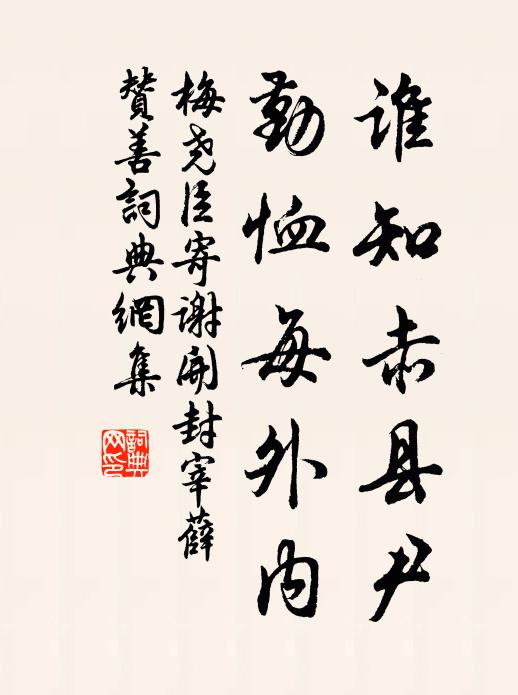 谁知赤县尹
勤恤每外内
梅尧臣寄谢开封宰薛
赞善词典網集
詞典
网印